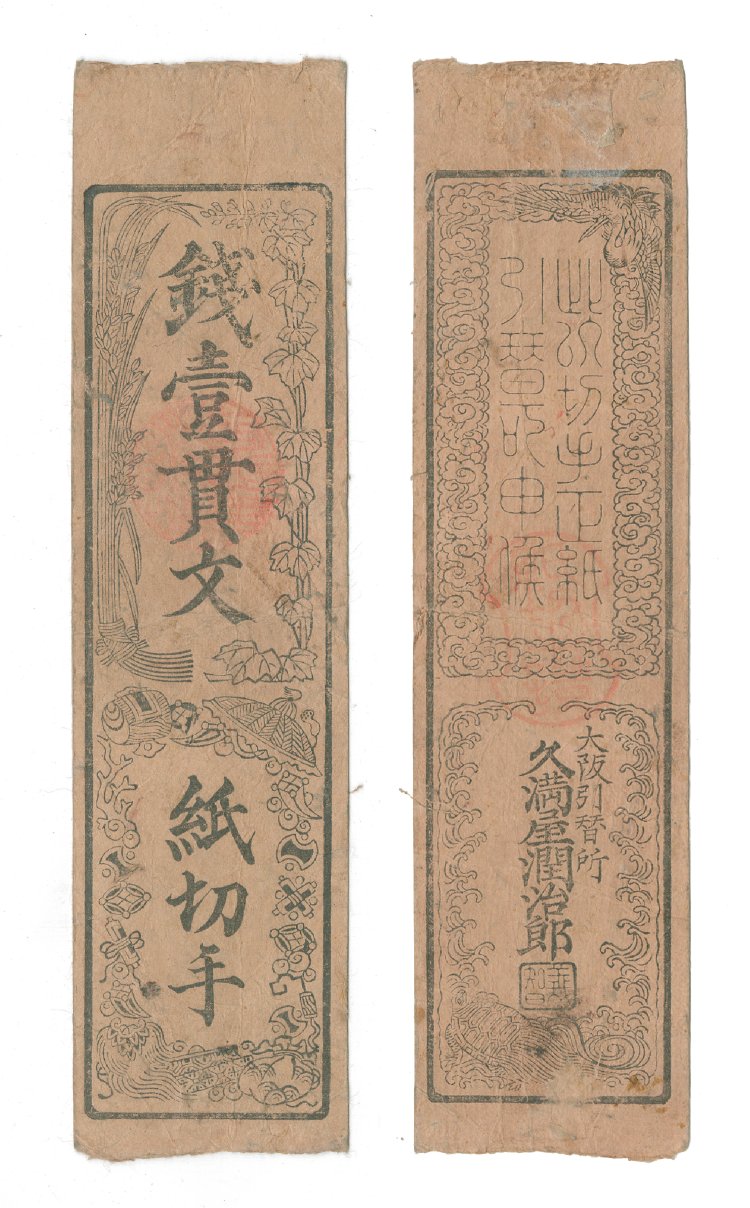 錢壹貫文
紙切手
此切手正紙
引替可申候
大阪引替所
久満屋潤治郎